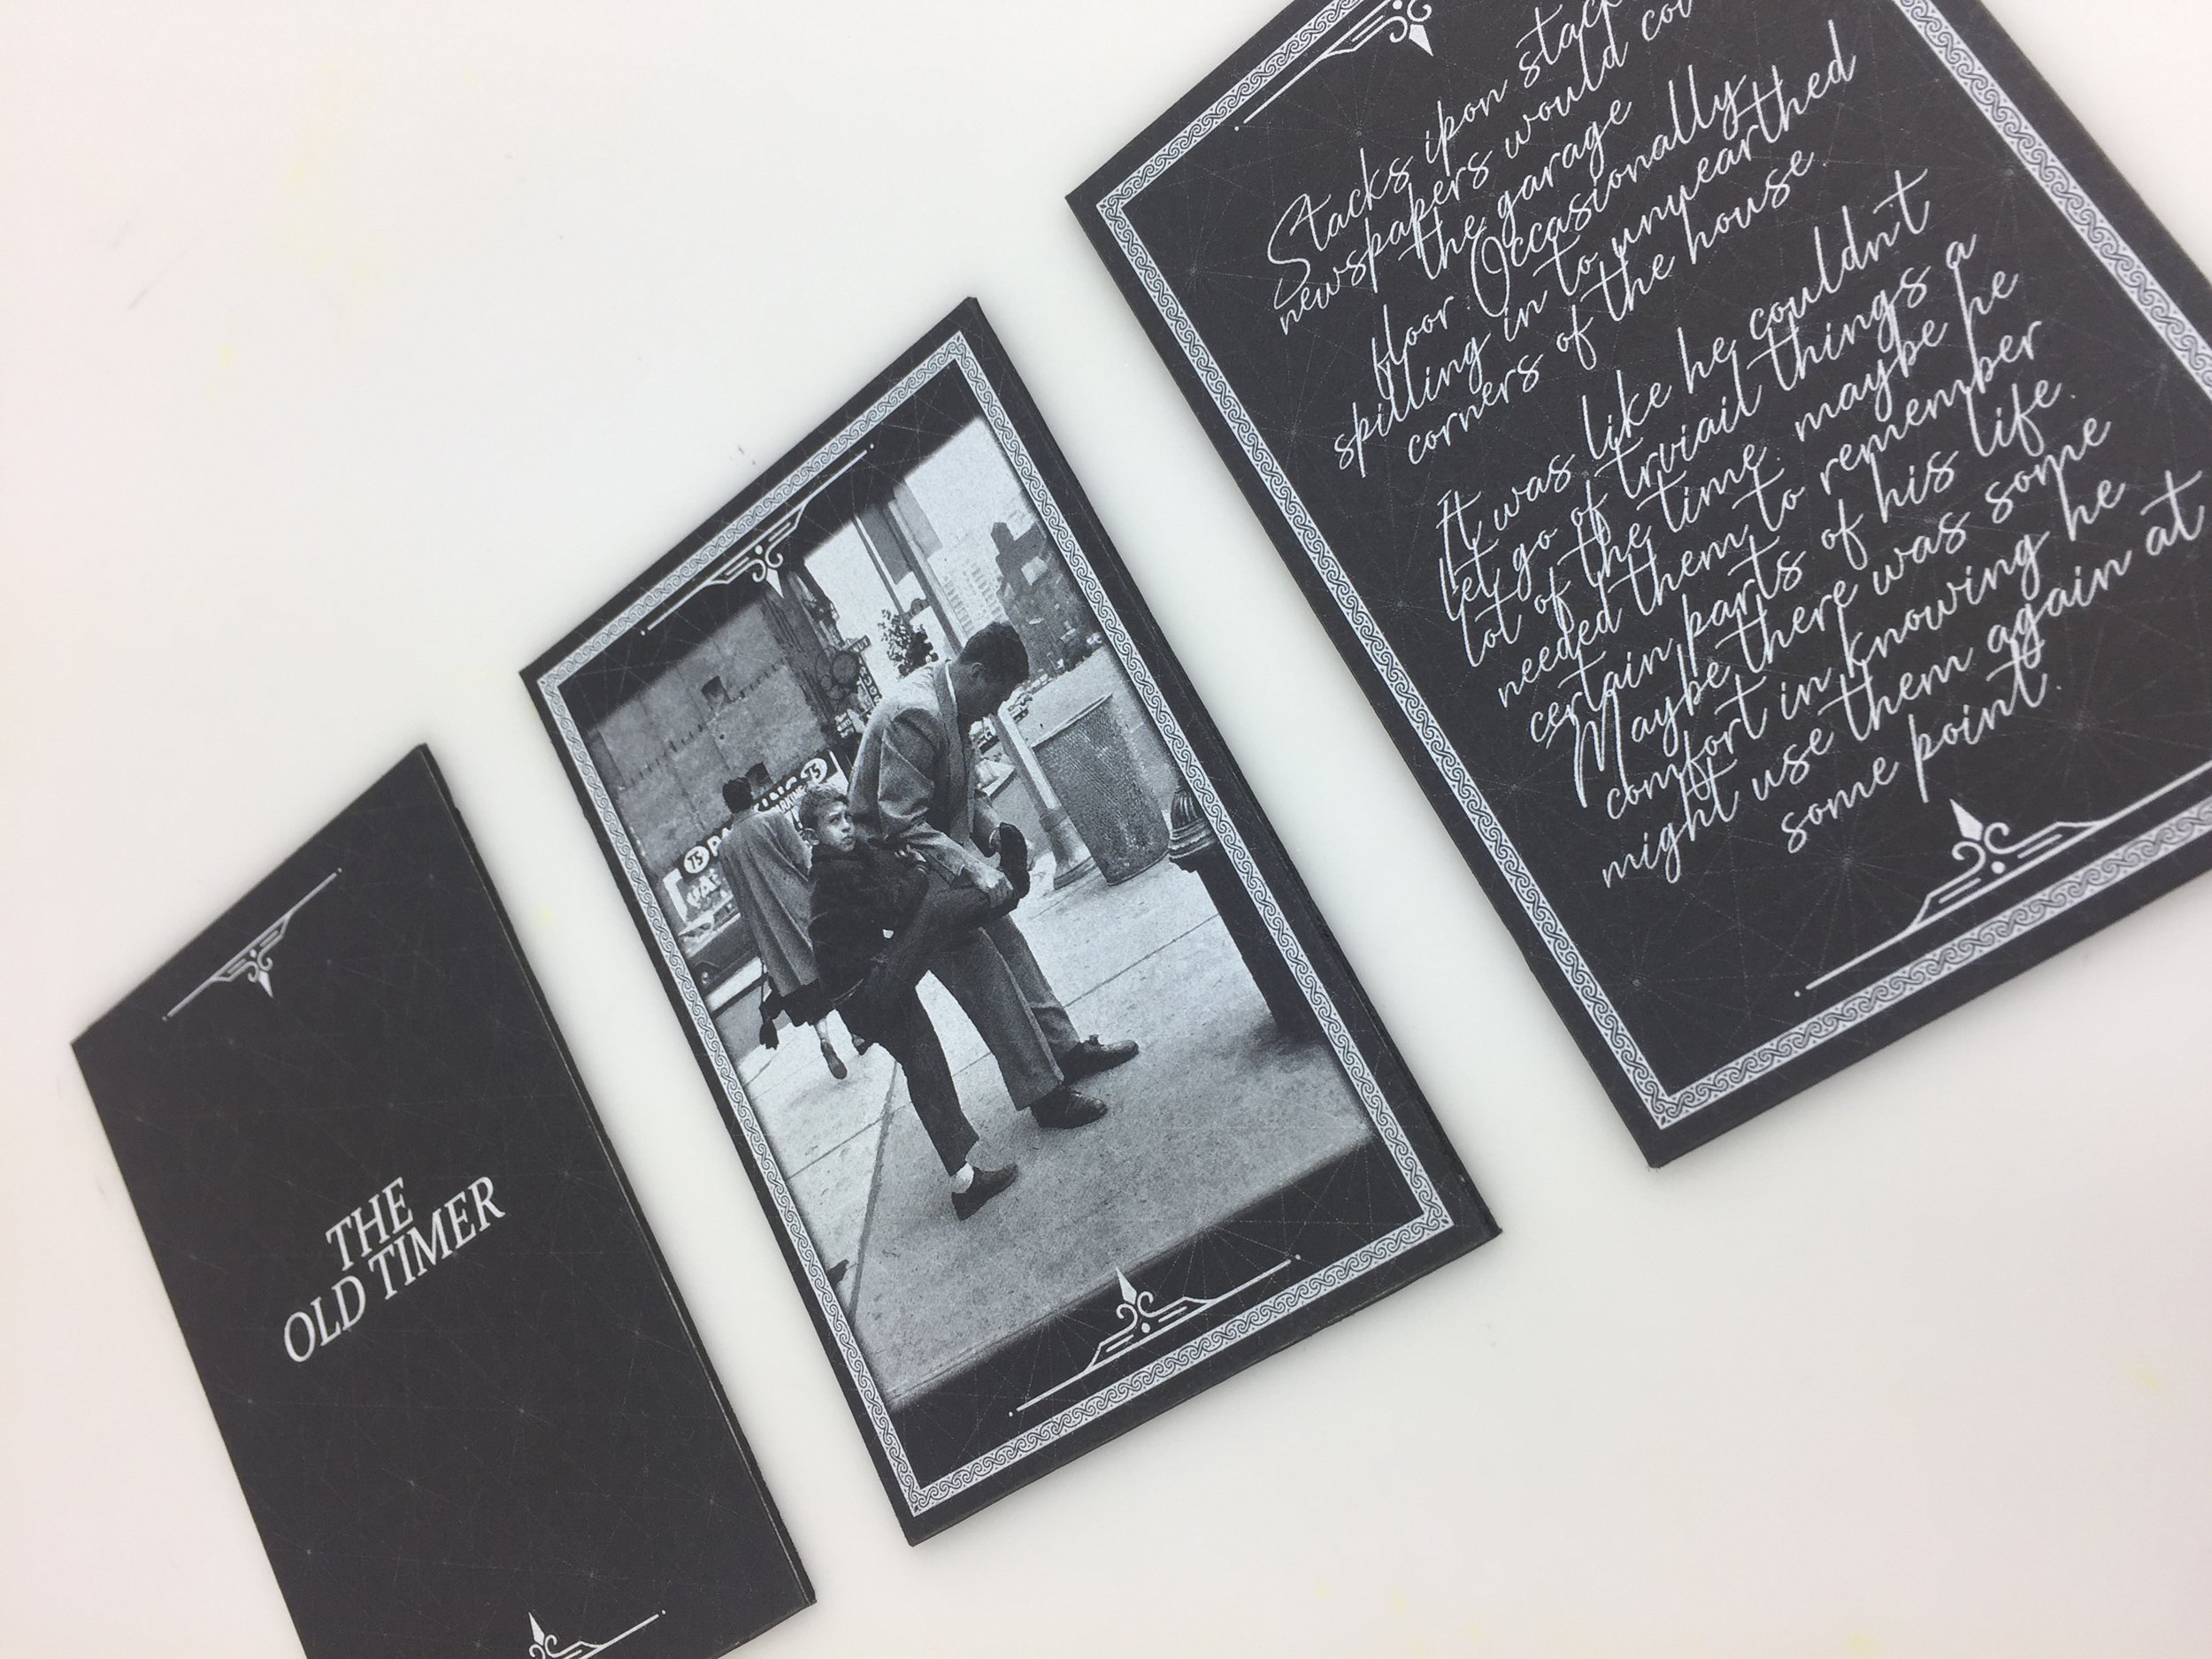 THE
OLD TIMER
75
75
Stacks ipon stack
newspapers would
the garage
floor. Occasionally
spilling in to unyearthed
corners of the house
It was like he couldn't
let go of trviail things a
lot of the time. maybe he
needed them to remember
certain parts of his life.
Maybe there was some
comfort in knowing he
might use them again at
some point.